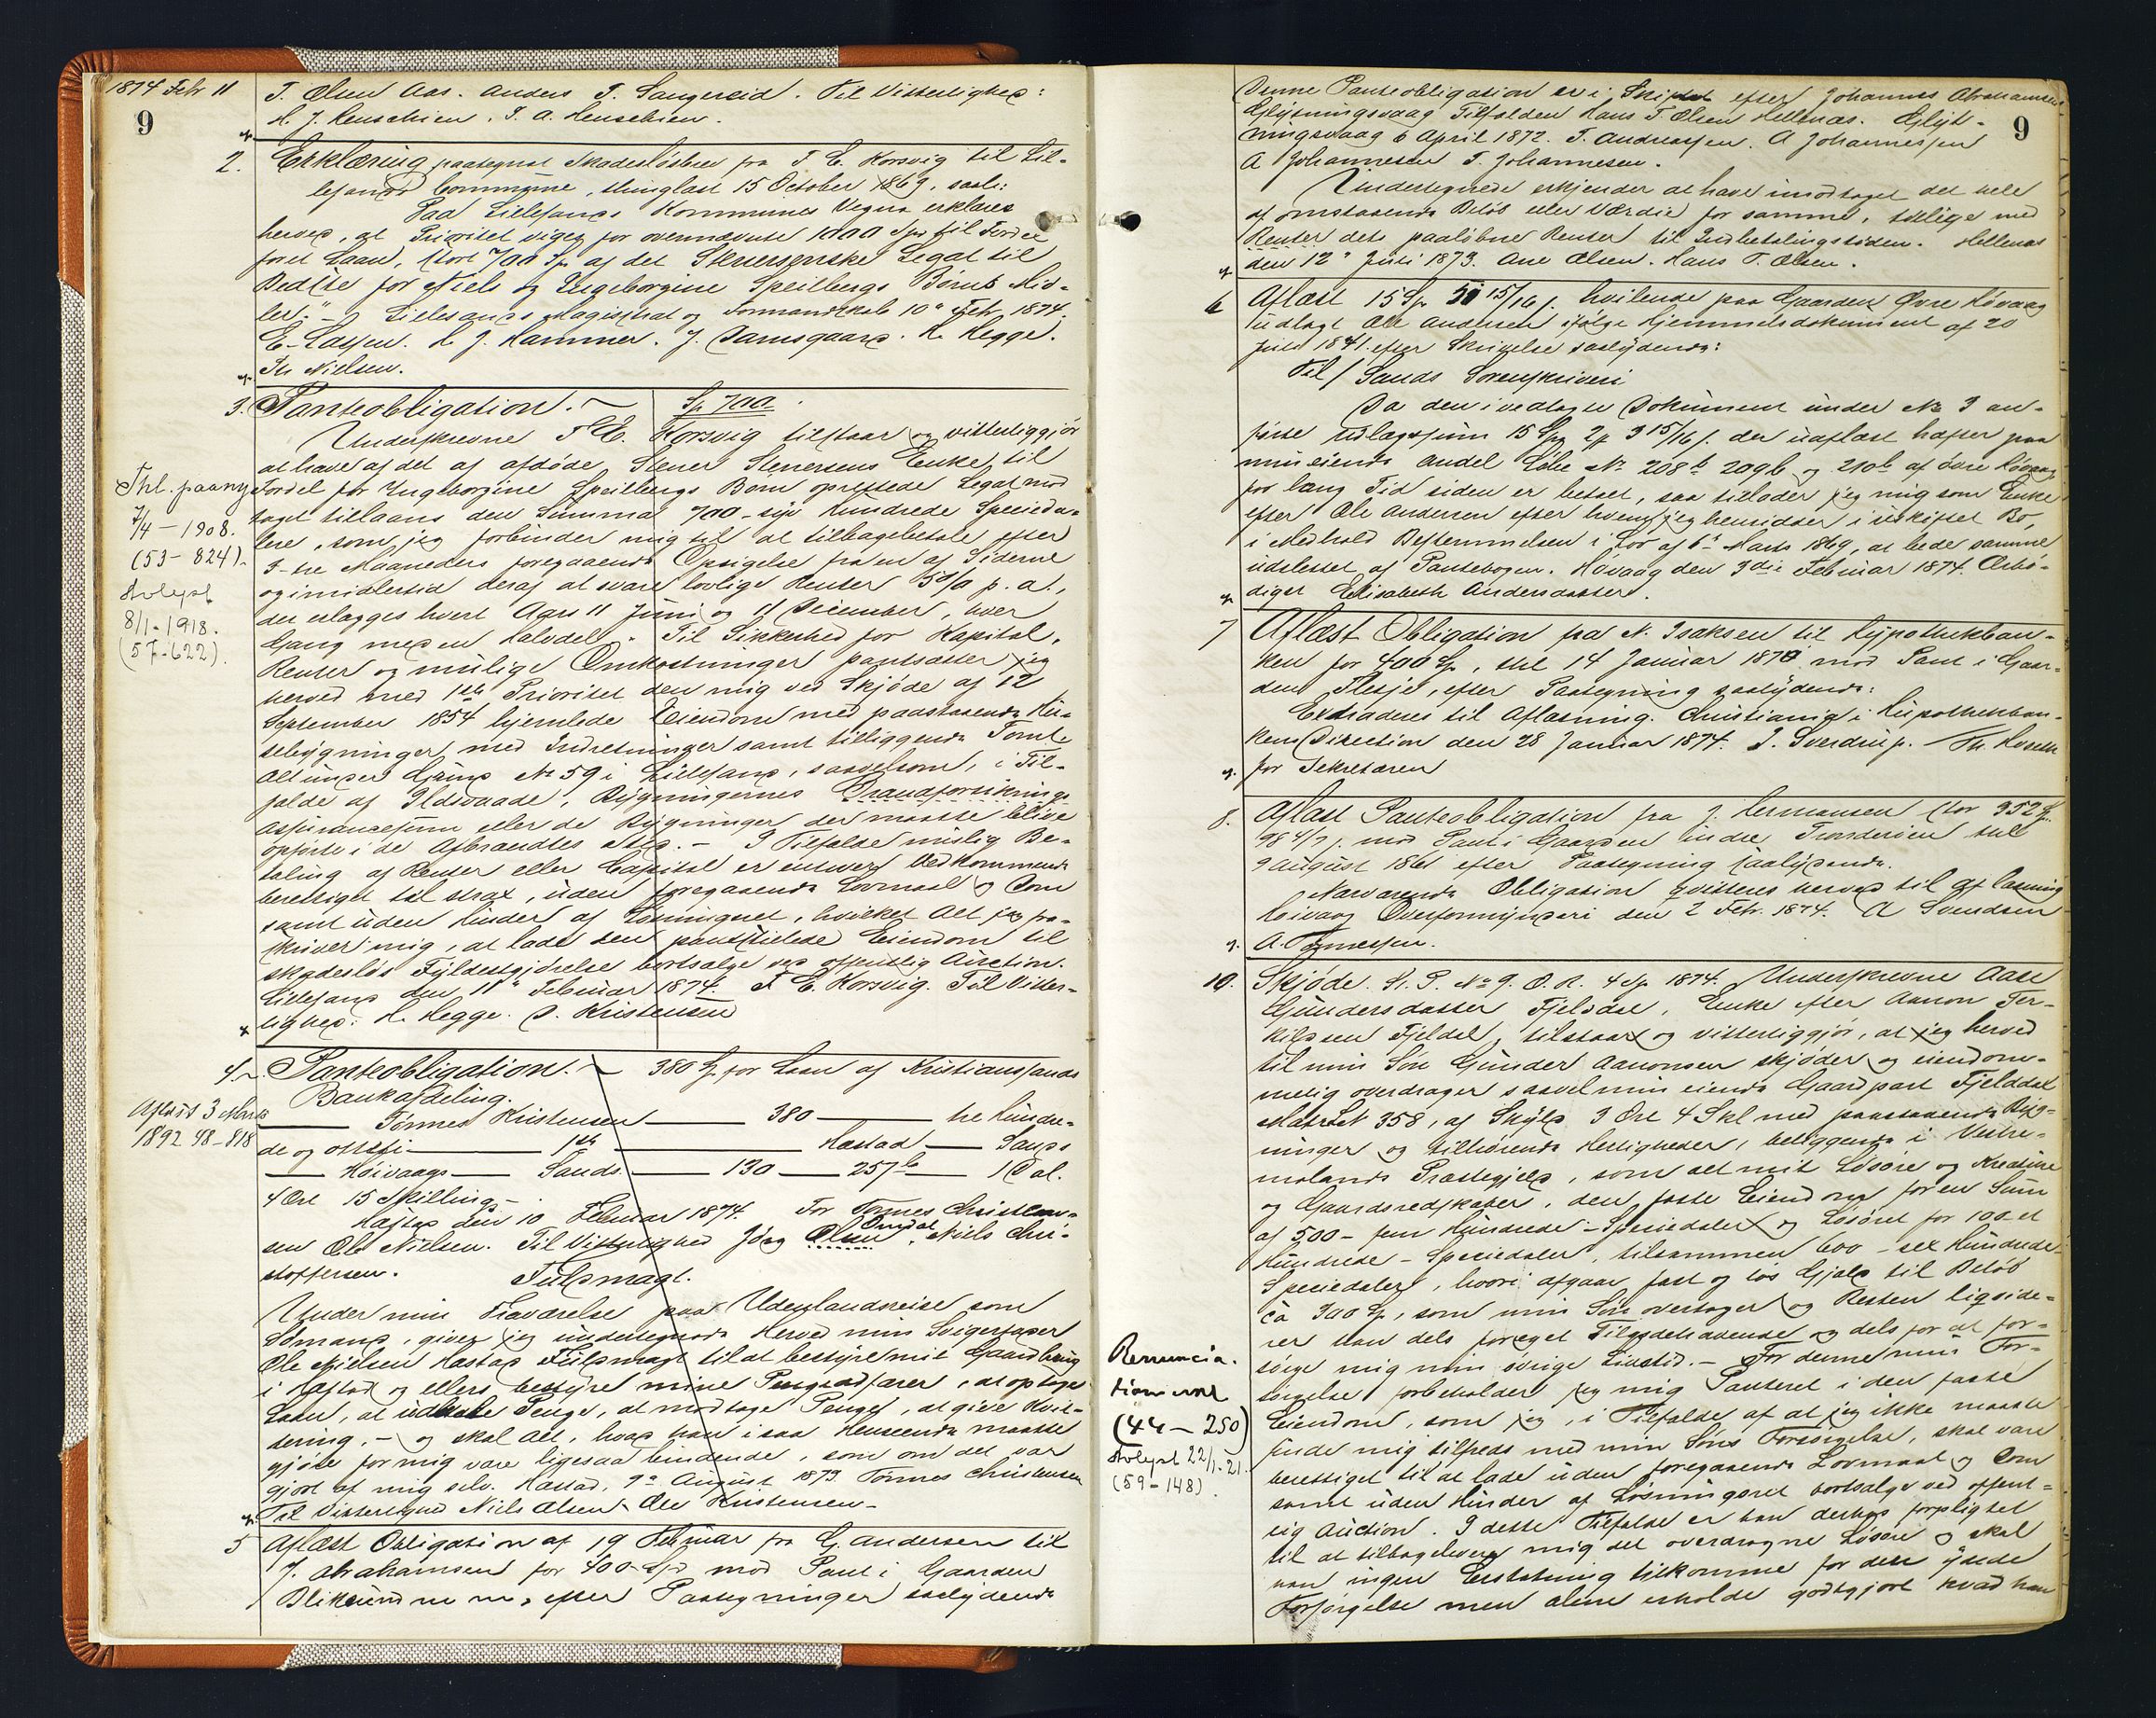 1874 Febr 11
9
T. Olsen Aas. Anders T. Saugereid. Til Vitterlighed:
H. J. Henschien. T. A. Henschien.
2. Erklæring paategnet Skadesløsbrev fra T E. Korsvig til Lil-
lesands Commune, thinglæst 15 October 1869, saal:
Paa Lillesands Kommunes Vegne erklæres
herved, at Prioritet viges for ovennævnte 1000 Spd til Fordel
foret Laan, stort 700 Sp af det Stenersenske Legat til
Bedste for Niels og Ingeborgine Speilbergs Børns Mid-
ler." – Lillesands Magistrat og Formandskab 10de Febr 1874.
E. Lassen. H J. Hammer. J. Damsgaard. H. Hegge.
Th Nielsen.
3. Panteobligation. Sp 700.
Underskrevne T E. Korsvig tilstaar og vitterliggjör
at have af det af afdöde Stener Stenersens Enke til
Fordel for Ingeborgine Speilbergs Börn oprettede Legat mod
taget tillaans den Summa 700 – syv Hundrede Specieda-
lere, som jeg forbinder mig til at tilbagebetale efter
3 – tre Maaneders foregaaende Opsigelse fra en af Siderne
og imidlertid deraf at svare lovlige Renter 5% p. a.,
der erlægges hvert Aars 11 Juni og 11 December, hver
Gang med en Halvdel. Til Sikkerhed for Kapital,
Renter og mulige Omkostninger pantsætter jeg
herved med 1ste Prioritet den mig ved Skjöde af 12
September 1854 hjemlede Eiendom med paastaaende Hu-
sebygninger med Indretninger samt tilliggende Tomt
Alt under Grund No 59 i Lillesand, saavelsom, i Til-
fælde af Ildsvaade, Bygningernes Brandforsikrings
Assurancesum eller de Bygninger der maatte blive
opförte i de Afbrændtes Sted. – I Tilfælde mislig Be-
taling af Renter eller Capital er enhver Vedkommende
berettiget til strax, uden foregaaende Lovmaal og Dom
samt uden Hinder af Lösningsret, hvilket Alt jeg fra-
skriver mig, at lade den pantstillede Eiendom til
skadeslös Fyldestgjörelse bortsælge ved offentlig Auction.
Lillesand den 11te Februar 1874. T E. Korsvig. Til Vitter-
lighed: H. Hegge. S. Kristensen
Thl. paany
7/4 – 1908.
(53 – 824).
Avlyst
8/1 - 1918.
(57 - 622).
4. Panteobligation. 380 Sp for Laan af Kristianssands
Bankafdeling.
Tönnes Kristensen 380 tre Hundre-
de og otteti 1ste Hæstad Sands
Höivaags Sands 130 257b 1 Dal.
4 Ort 15 Skilling –
Hæstad den 10 Februar 1874. For Tönnes Christen-
sen Ole Nielsen. Til Vitterlighed Jörg Olsen Omdal, Niels Chri-
stoffersen.
Fuldmagt.
Aflæst 3 Marts
1892 48-818
Under min Fraværelse paa Udenlandsreise som
Sömand, giver jeg undertegnede Herved min Svigerfader
Ole Nielsen Hæstad Fuldmagt til at bestyre mit Gaardbrug
i Hæstad og ellers bestyre mine Pengeaffærer, at optage
Laan, at udbetale Penge, at modtage Penge, at give Kvit-
tering, – og skal Alt, hvad han i saa Henseende maatte
gjöre for mig være ligesaa bindende, som om det var
gjort af mig selv. Hæstad, 7de August 1873. Tönnes Christensen
Til Vitterlighed Niels Olsen Ole Kristensen –
5 Aflæst Obligation af 19 Februar fra G. Andersen til
J. Abrahamsen for 400 Spd mod Pant i Gaarden
Bliksund m m, efter Paategninger saalydende
9
Denne Panteobligation er i Skiftet efter Johannes Abrahamsen
Glytningsvaag Tilfalden Hans T. Olsen Hellenæs. Glyt-
ningsvaag 6 April 1872. T. Andreassen. A Johannessen
A Johannesen T. Johannesen.
Undertegnede erkjender at have imodtaget det hele
af omstaaende Belöb eller Værdie for samme, tillige med
Renter dets paalöbne Renter til Indbetalingstiden. Hellenæs
den 12te Juli 1873. Ane Olsen. Hans T. Olsen.
6 Aflæst 15 Sp 51 15/16 s. hvilende paa Gaarden Övre Hövaag
udlagt Ole Andersen ifölge Hjemmelsdokument af 20
Juli 1841. efter Skrivelse saalydende:
Til / Sands Sorenskriveri
Da den i vedlagte Dokument under No 3 an-
förte Udlægssum 15 Spd 2 3 15/16 s. der uaflæst hæfter paa
min eiende Andel Löbe No 208b 209b og 210b af övre Hövaag
for lang Tid siden er betalt, saa tillader jeg mig som Enke
efter Ole Andersen efter hvem jeg hensidder i uskiftet Bo,
i Medhold Bestemmelsen i Lov af 6te Marts 1869, at bede samme
udslettet af Pantebogen. Hövaag den 3die Februar 1874. Ærbö-
digst Elisabeth Andersdatter.
7 Aflæst Obligation fra N. Isaksen til Hypothekban-
ken for 400 Sp, thl 14 Januar 1870 mod Pant i Gaar-
den Flesje, efter Paategning saalydende:
Extraderes til Aflæsning. Christiania i Hypothekban-
kens Direction den 28 Januar 1874. J. Sverdrup. Th. Horeth
for Sekretæren
8. Aflæst Panteobligation fra J. Hermansen stor 352 Sp
98 4/7 s. mod Pant i Gaarden indre Tronderöen thl
9 August 1861 efter Paategning saalydende.
Nærværende Obligation qvitteres herved til aflæsning
Höivaag Overformynderi den 2 Febr. 1874. A Svendsen
A. Tönnessen.
10. Skjöde. K. P. No 9. O. R. 4 Sp 1874. Underskrevne Aase
Gundersdatter Fjeldal, Enke efter Aanon Ter-
kildsen Fjeldal, tilstaar og vitterliggjör, at jeg herved
til min Sön Gunder Aanonsen skjöder og eiendom-
melig overdrager saavel min eiende Gaardpart Fjeldal
Matr Lt 358, af Skyld 3 Ort 4 Skl med paastaaende Byg-
ninger og tilhörende Herligheder, beliggende i Vestre-
molands Præstegjeld, som alt mit Lösöre og Kreature
og Gaardsredskaber, den faste Eiendom for en Sum
af 500 – fem Hundrede – Speciedaler og Lösöret for 100 – et
Hundrede – Speciedaler, tilsammen 600 – sex Hundrede
Speciedaler, hvori afgaar fast og lös Gjæld til Belöb
ca 300 Sp, som min Sön overtager og Resten liqvide-
rer han dels for eget Tilgodehavende og dels for at for-
sörge mig min övrige Livstid. – For denne min For-
sörgelse forbeholder jeg mig Panteret i den faste
Eiendom, som jeg, i Tilfælde af at jeg ikke maatte
finde mig tilfreds med min Söns Forsörgelse, skal være
berettiget til at lade uden foregaaende Lovmaal og Dom
samt uden Hinder af Lösningsret bortsælge ved offent-
lig Auction. I dette Tilfælde er han derhos forpligtet
til at tilbagelevere mig det overdragne Lösöre og skal
han ingen Erstatning tilkomme for den ydede
Forsörgelse men alene erholde godtgjort hvad han
Renuncia-
tion
(44 – 250)
Avlyst 22/1-21.
(59 - 148).